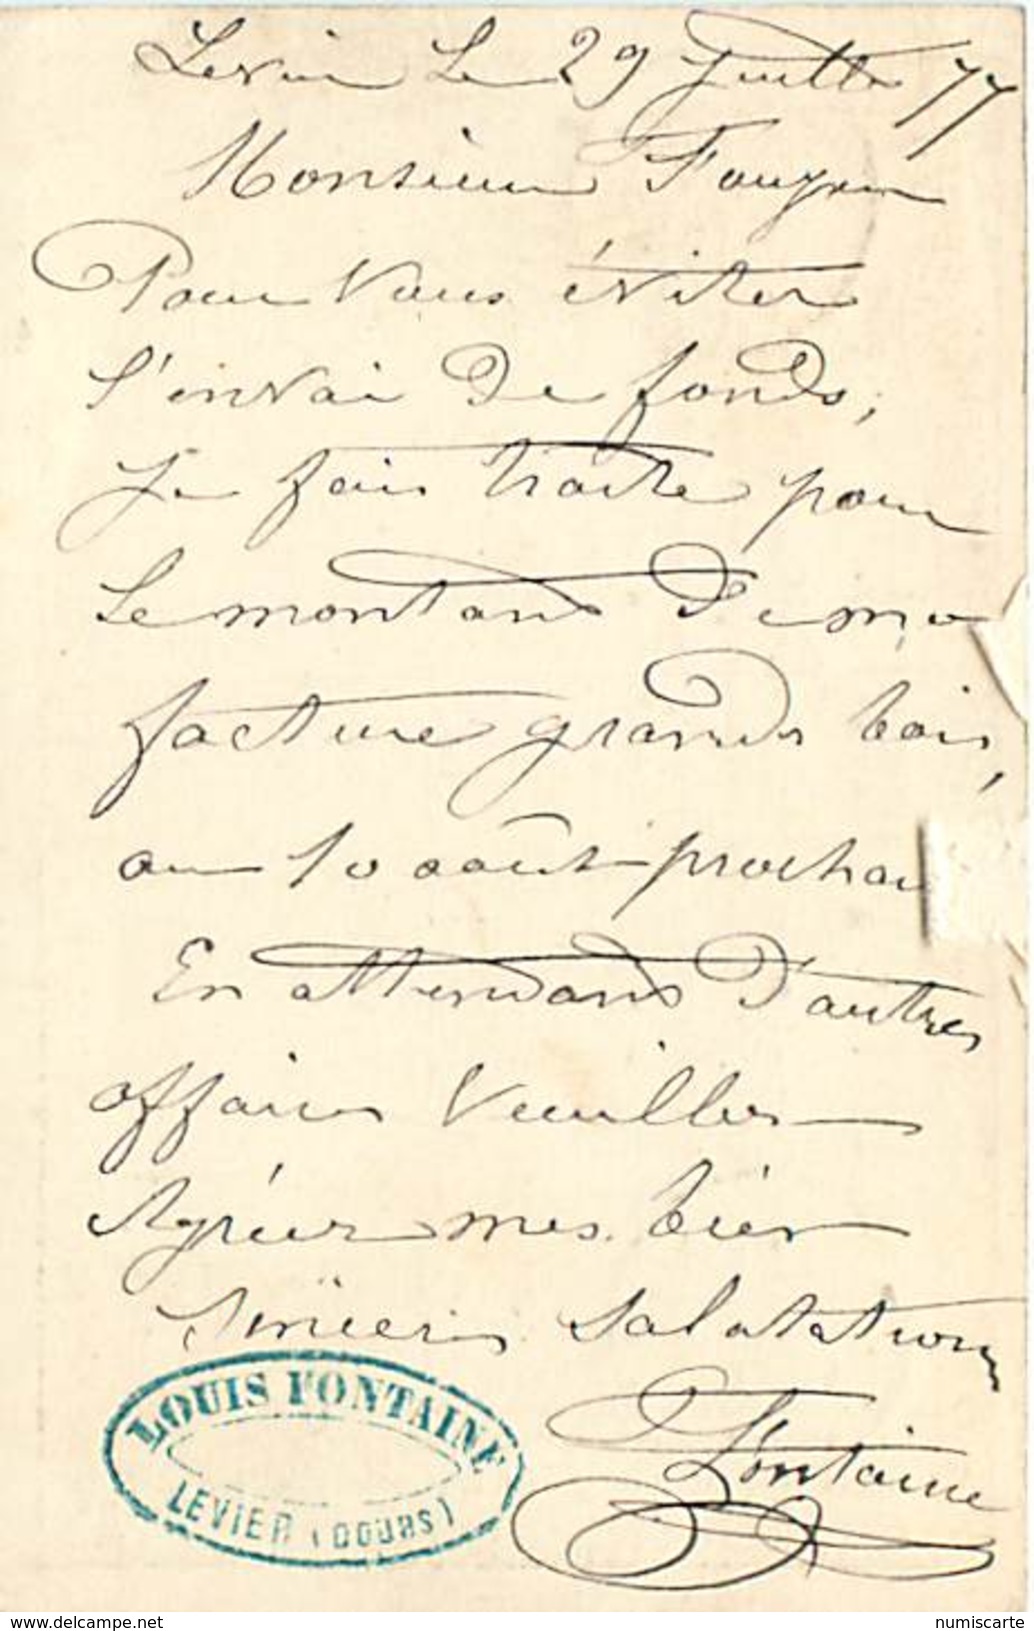 Levier Le 29 Juillet 77
Monsieur
Pour Vous éviter
l'envai de fonds,
Je fais traite pour
Le montant de ma
facture grands bois,
au 10 août prochai
En attendant d'autres
affaires Veuillez
Agréer mes bien
sincères salutations
Fontaine
LOUIS FONTAINE
LEVIER (DOUBS)
www.delcampe.net
numiscarte